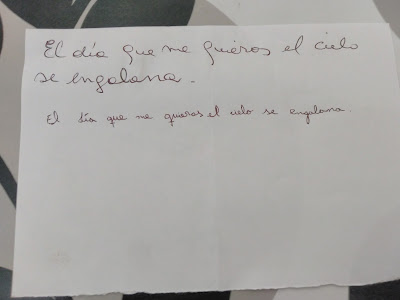 El día que me quieras el cielo
se engalana.
El día que me quieras el cielo se engalana.